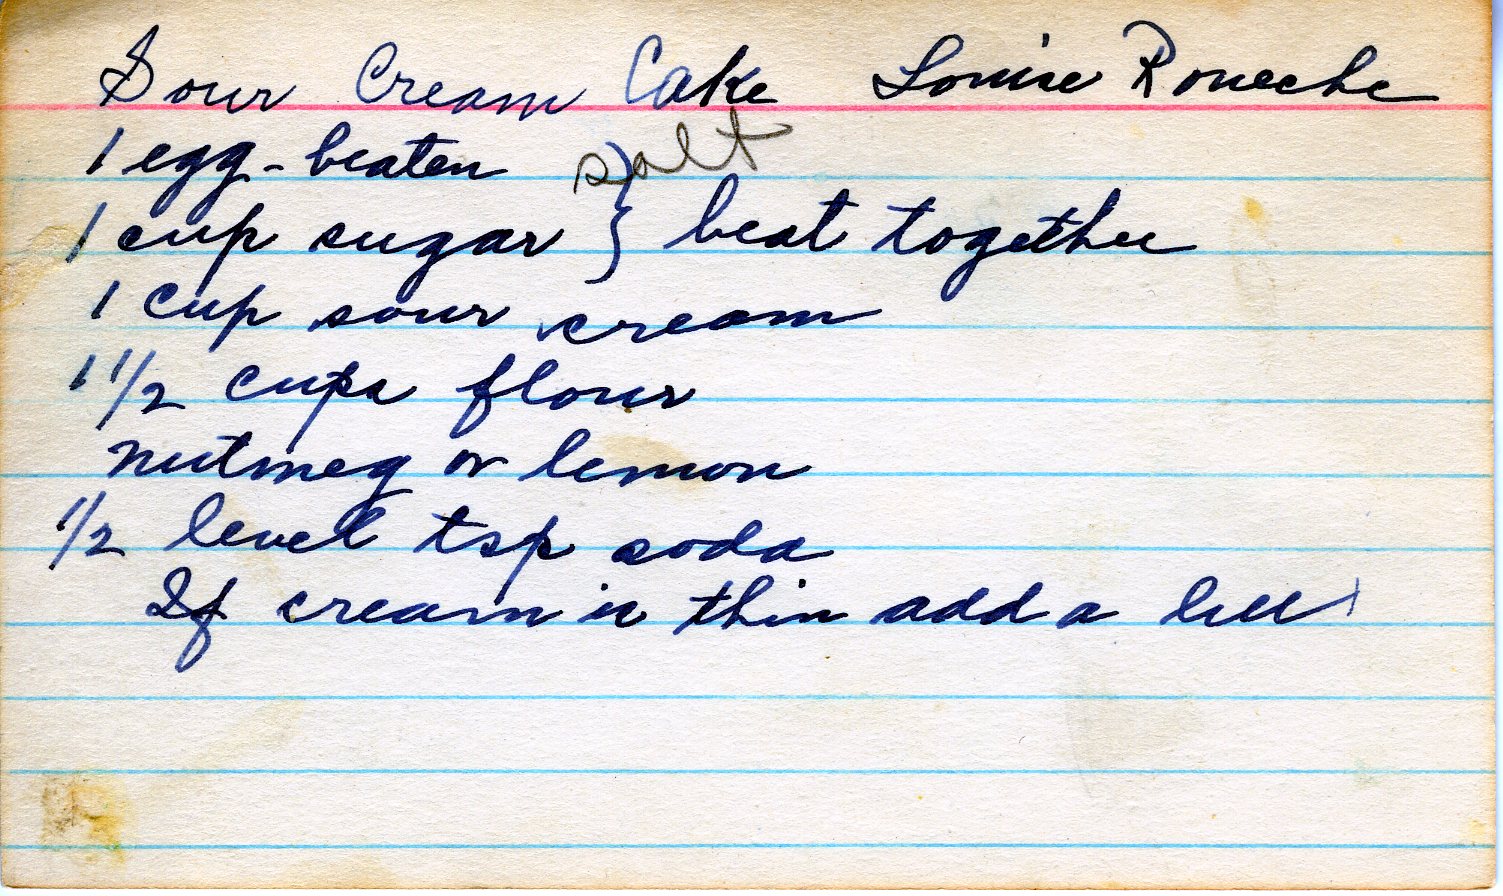 Sour Cream Cake Louise Roueche
1 egg - beaten salt
1 cup sugar } beat together
1 cup sour cream
1 1/2 cups flour
nutmeg or lemon
1/2 level tsp soda
If cream is thin add a